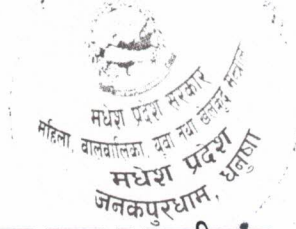 मधेश प्रदेश सरकार
महिला, बालबालिका, युवा तथा खेलकुद मन्त्रालय
मधेश प्रदेश
जनकपुरधाम, धनुषा